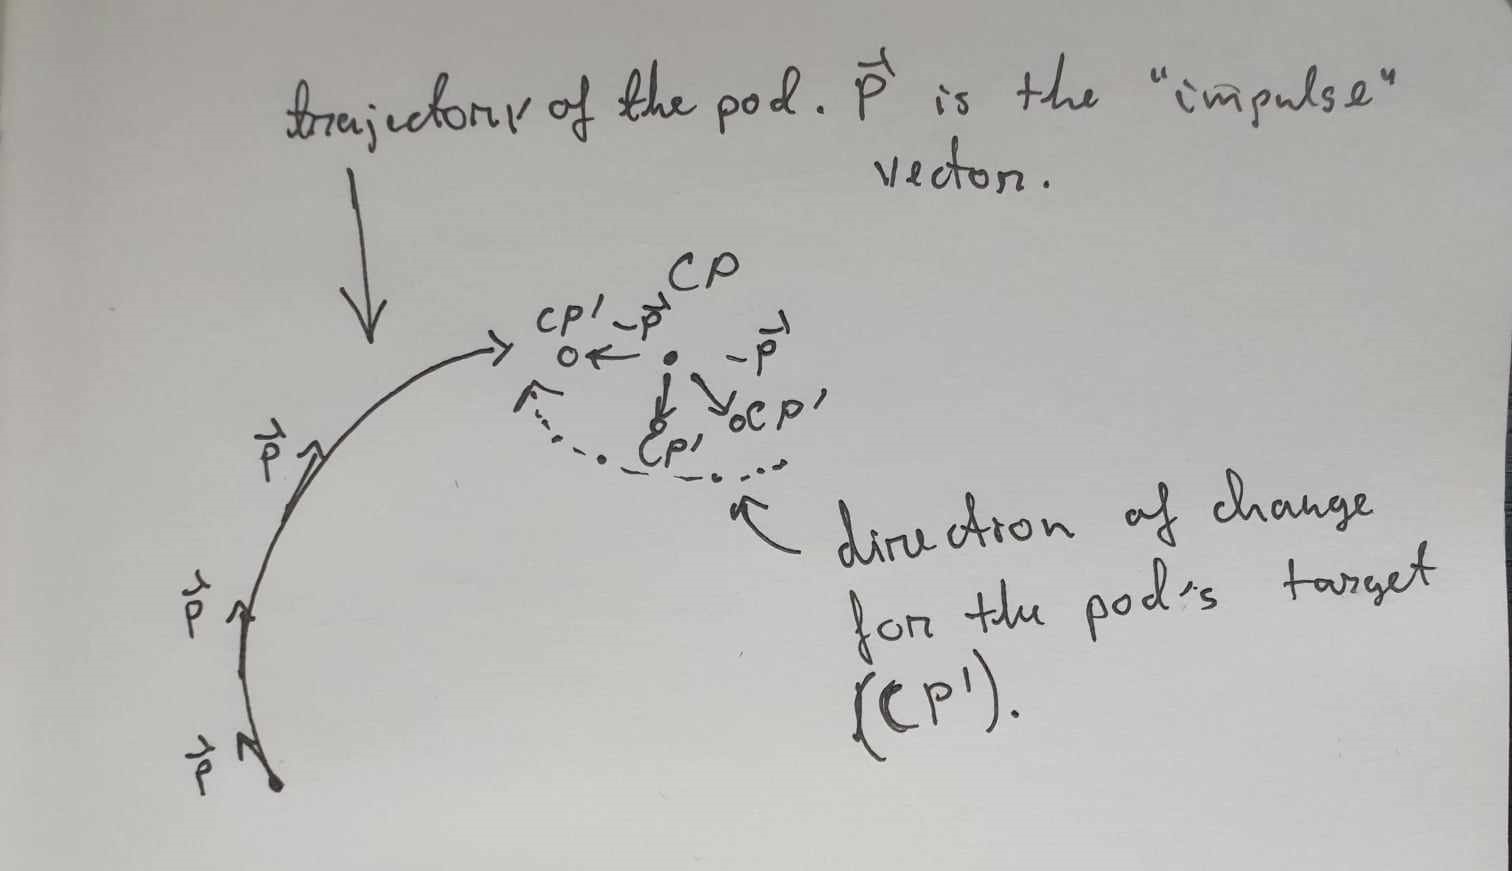 trajectory of the pod. p⃗ is the "impulse"
vector.
CP
CP' -p⃗
-p⃗
CP'
CP'
p⃗
direction of change
for the pod's target
(CP').
p⃗
p⃗